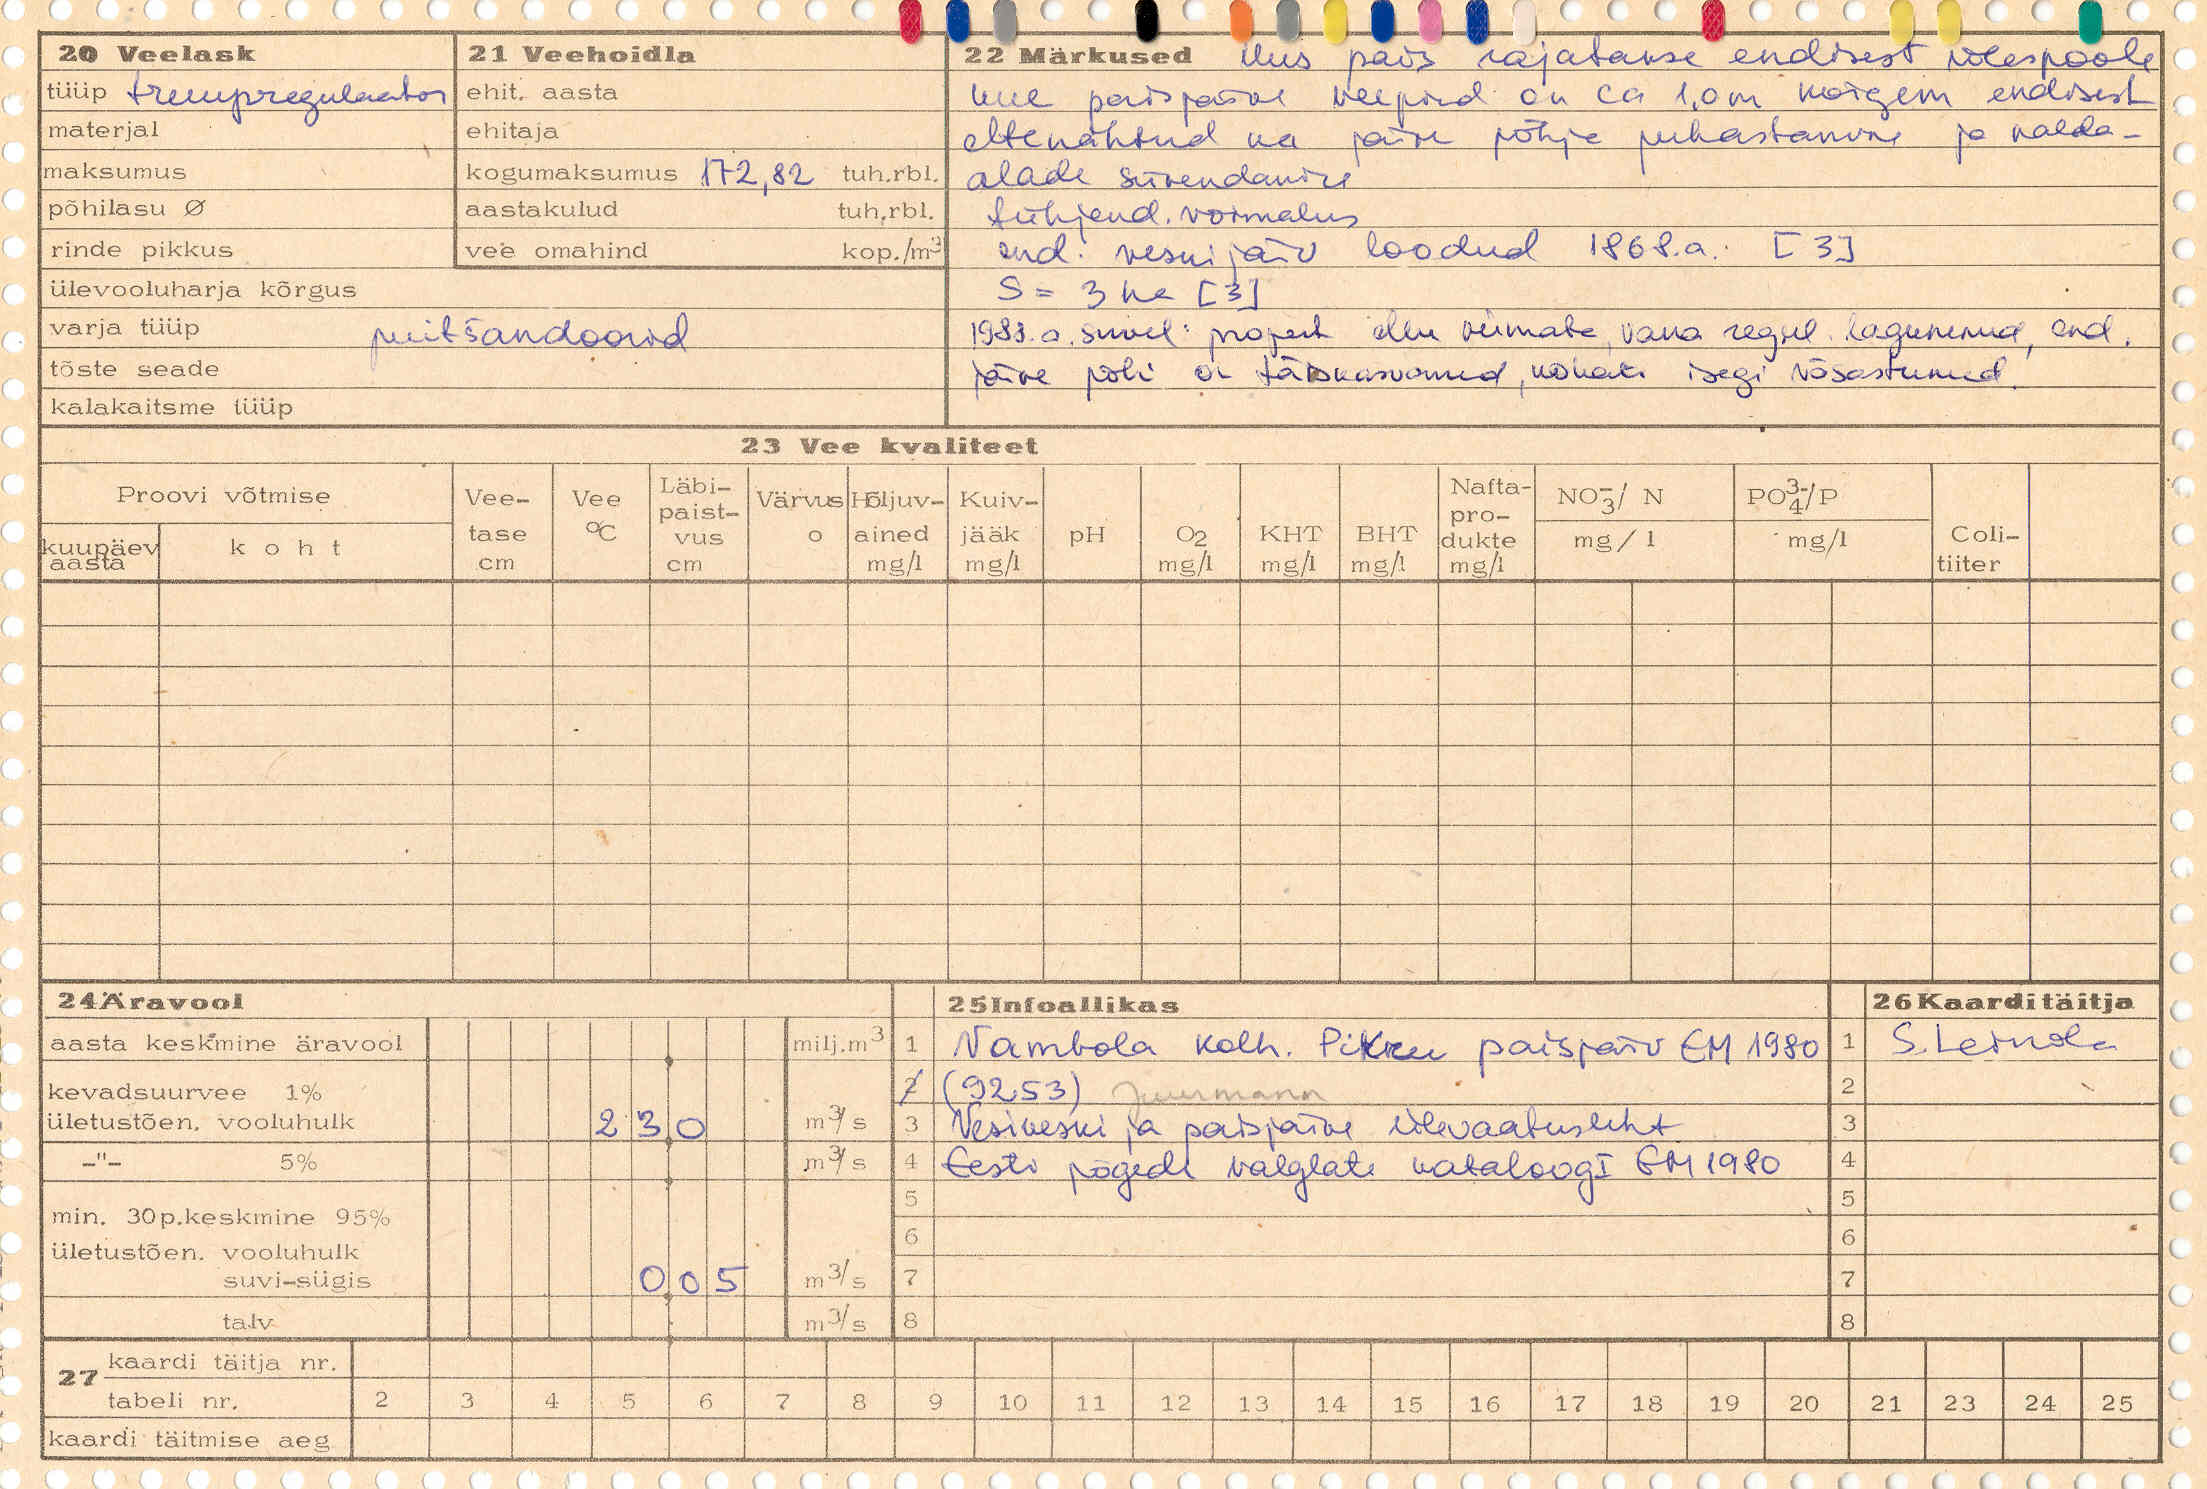 20 Veelask
tüüp trummpregulaator
materjal
maksumus
põhilasu Ø
rinde pikkus
ülevooluharja kõrgus
varja tüüp puitšandoorid
tõste seade
kalakaitsme tüüp
21 Veehoidla
ehit. aasta
ehitaja
kogumaksumus 172,82 tuh.rbl.
aastakulud tuh.rbl.
vee omahind kop./m³
22 Märkused Uus pais rajatakse endisest ülespoole
uue paisjärve veepind on ca 1,0 m kõrgem endisest
ettenähtud ka järve põhja puhastamine ja kalda-
alade süvendamine
tühjend. võimalus
end. veskijärv loodud 1868.a. [3]
S = 3 ha [3]
1983.a. suvel: projekt ellu viimata, vana regul. lagunenud, end.
järve põhi on täiskasvanud, kohati isegi võsastunud.
23 Vee kvaliteet
Proovi võtmise
kuupäev aasta
koht
Vee- tase cm
Vee °C
Läbi- paist- vus cm
Värvus o
Hõljuv- ained mg/l
Kuiv- jääk mg/l
pH
O2 mg/l
KHT mg/l
BHT mg/l
Nafta- pro- dukte mg/l
NO3-/ N mg/l
PO4 3-/P mg/l
Coli- tiiter
24 Äravool
aasta keskmine äravool milj.m³
kevadsuurvee 1%
ületustõen. vooluhulk 23,0 m³/s
-"- 5% m³/s
min. 30p.keskmine 95%
ületustõen. vooluhulk
suvi-sügis 0,05 m³/s
talv m³/s
25 Infoallikas
1 Vambola kolh. Pikru paisjärv EM 1980
2 (9253) Juurmann
3 Vesiveski ja paisjärve ülevaatusleht
4 Eesti jõgede valglate kataloog I EM 1980
5
6
7
8
26 Kaarditäitja
1 S. Leinola
2
3
4
5
6
7
8
27 kaardi täitja nr.
tabeli nr. 2 3 4 5 6 7 8 9 10 11 12 13 14 15 16 17 18 19 20 21 23 24 25
kaardi täitmise aeg